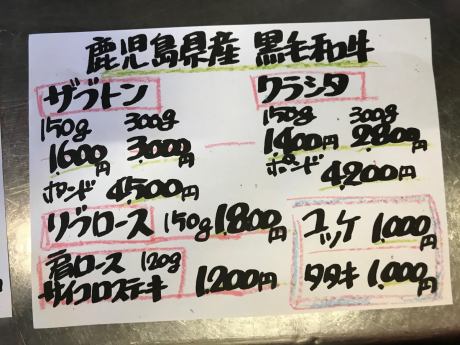 鹿児島県産 黒毛和牛
ザブトン
150g 300g
1,600円 3,000円
ポンド 4,500円
クラシタ
150g 300g
1400円 2,800円
ポンド 4,200円
リブロース 150g 1,800円
肩ロース 120g
サイコロステーキ 1,200円
ユッケ 1,000円
タタキ 1,000円